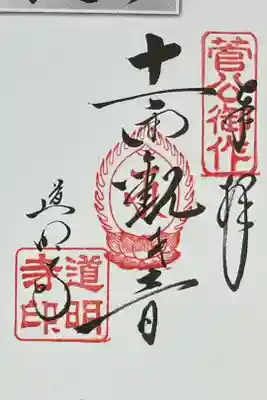 菅公御作
奉拝
十一面観世音
道明寺
道明
寺印